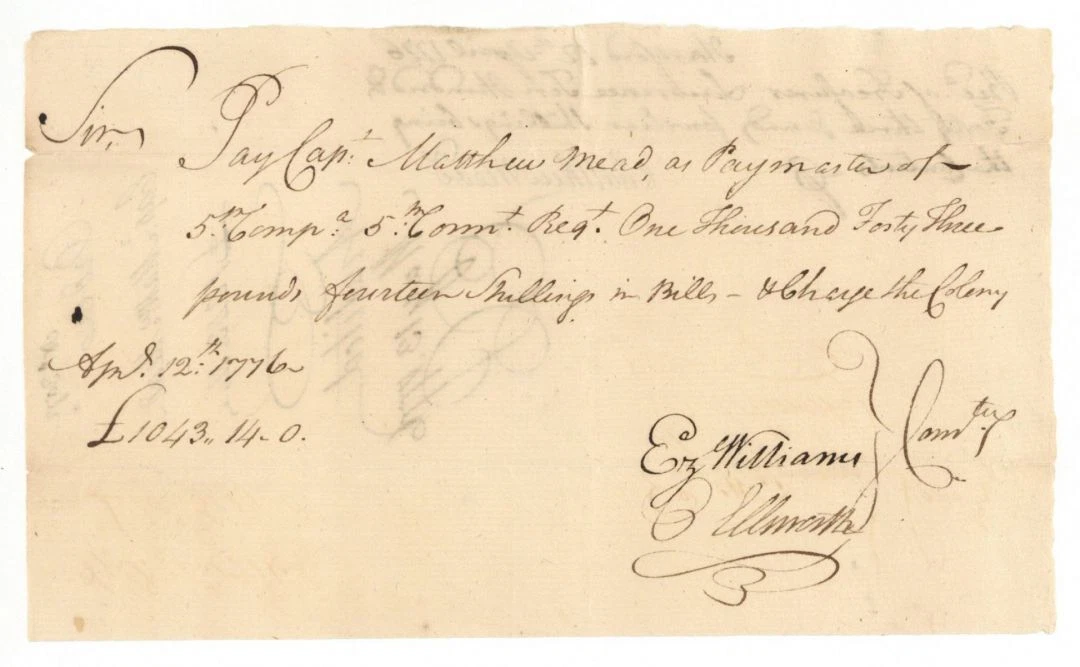 Sir,
Pay Capt. Matthew Mead, as Paymaster of
5th Compa. 5th Connt. Regt. One Thousand Forty Three
pounds fourteen Shillings in Bills – & Charge the Colony
Apl. 12th. 1776
£1043,, 14 - 0.
Ez Williams
Ellsworth
Comtee